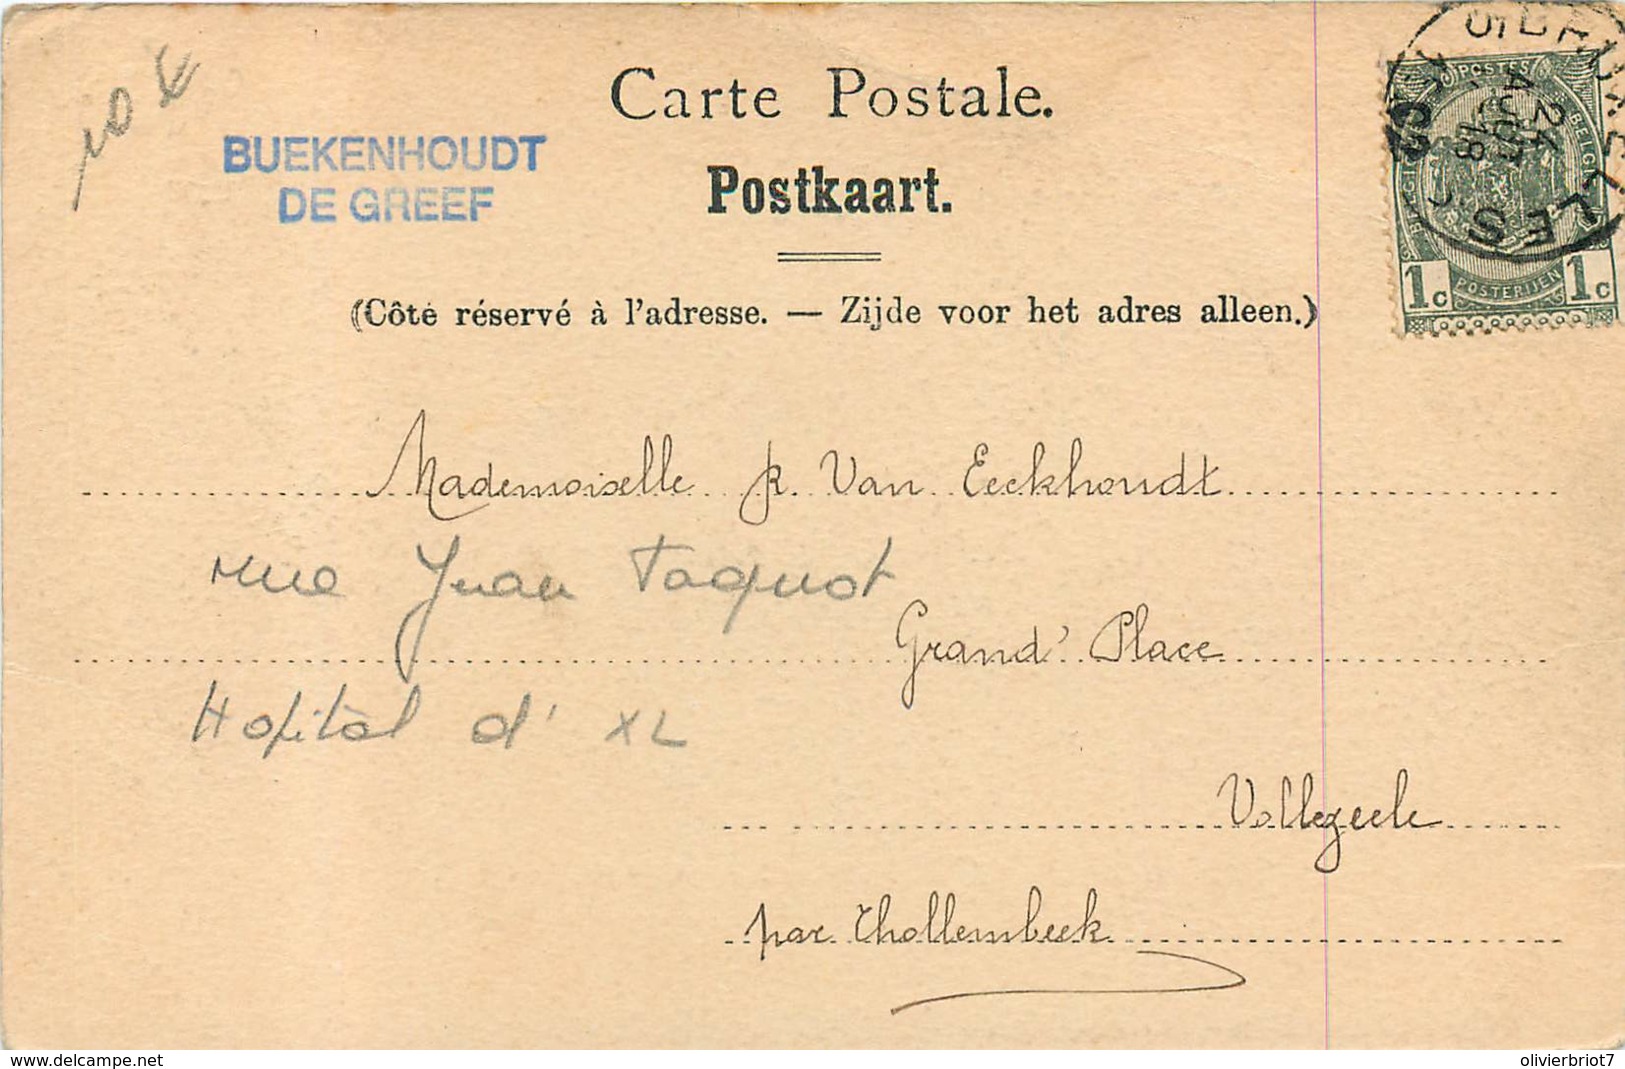 10 €
BUEKENHOUDT
DE GREEF
Carte Postale.
Postkaart.
(Côté réservé à l'adresse. — Zijde voor het adres alleen.)
BRUXELLES
24
AOUT
18
POSTES
BELGIQUE
1c POSTERIJEN 1c
Mademoiselle R. Van Eeckhoudt
rue Jean Taquot
Grand' Place
Hopitàl d' XL
Vollezeele
par Thollembeek
www.delcampe.net
olivierbriot7